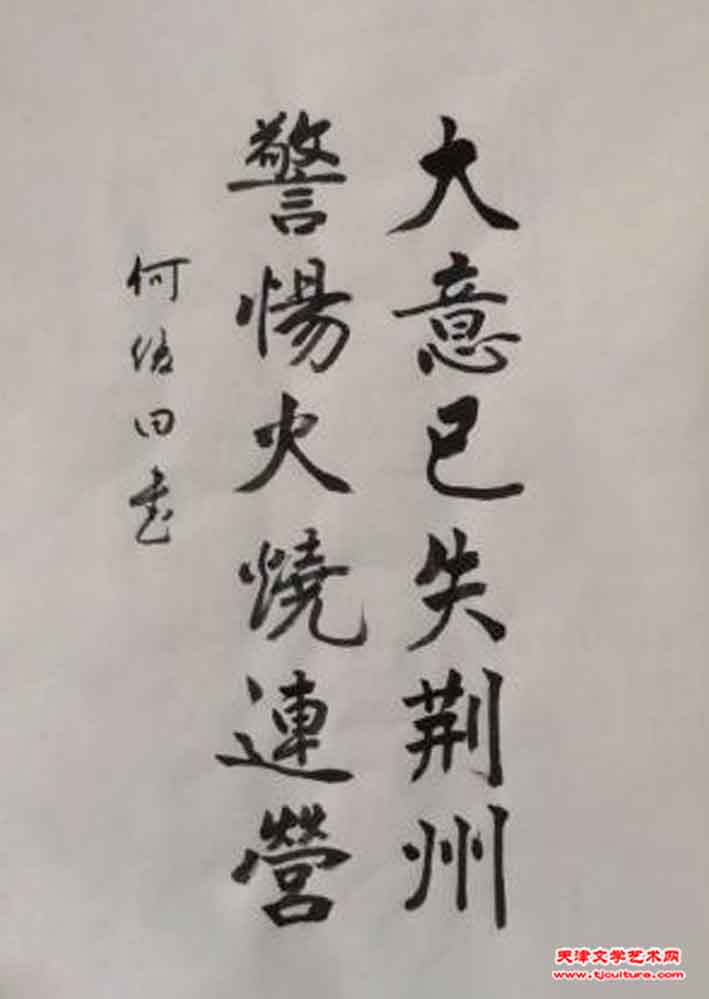 大意已失荆州
警惕火燒連營
何伍田書
天津文学艺术网
www.tjculture.com